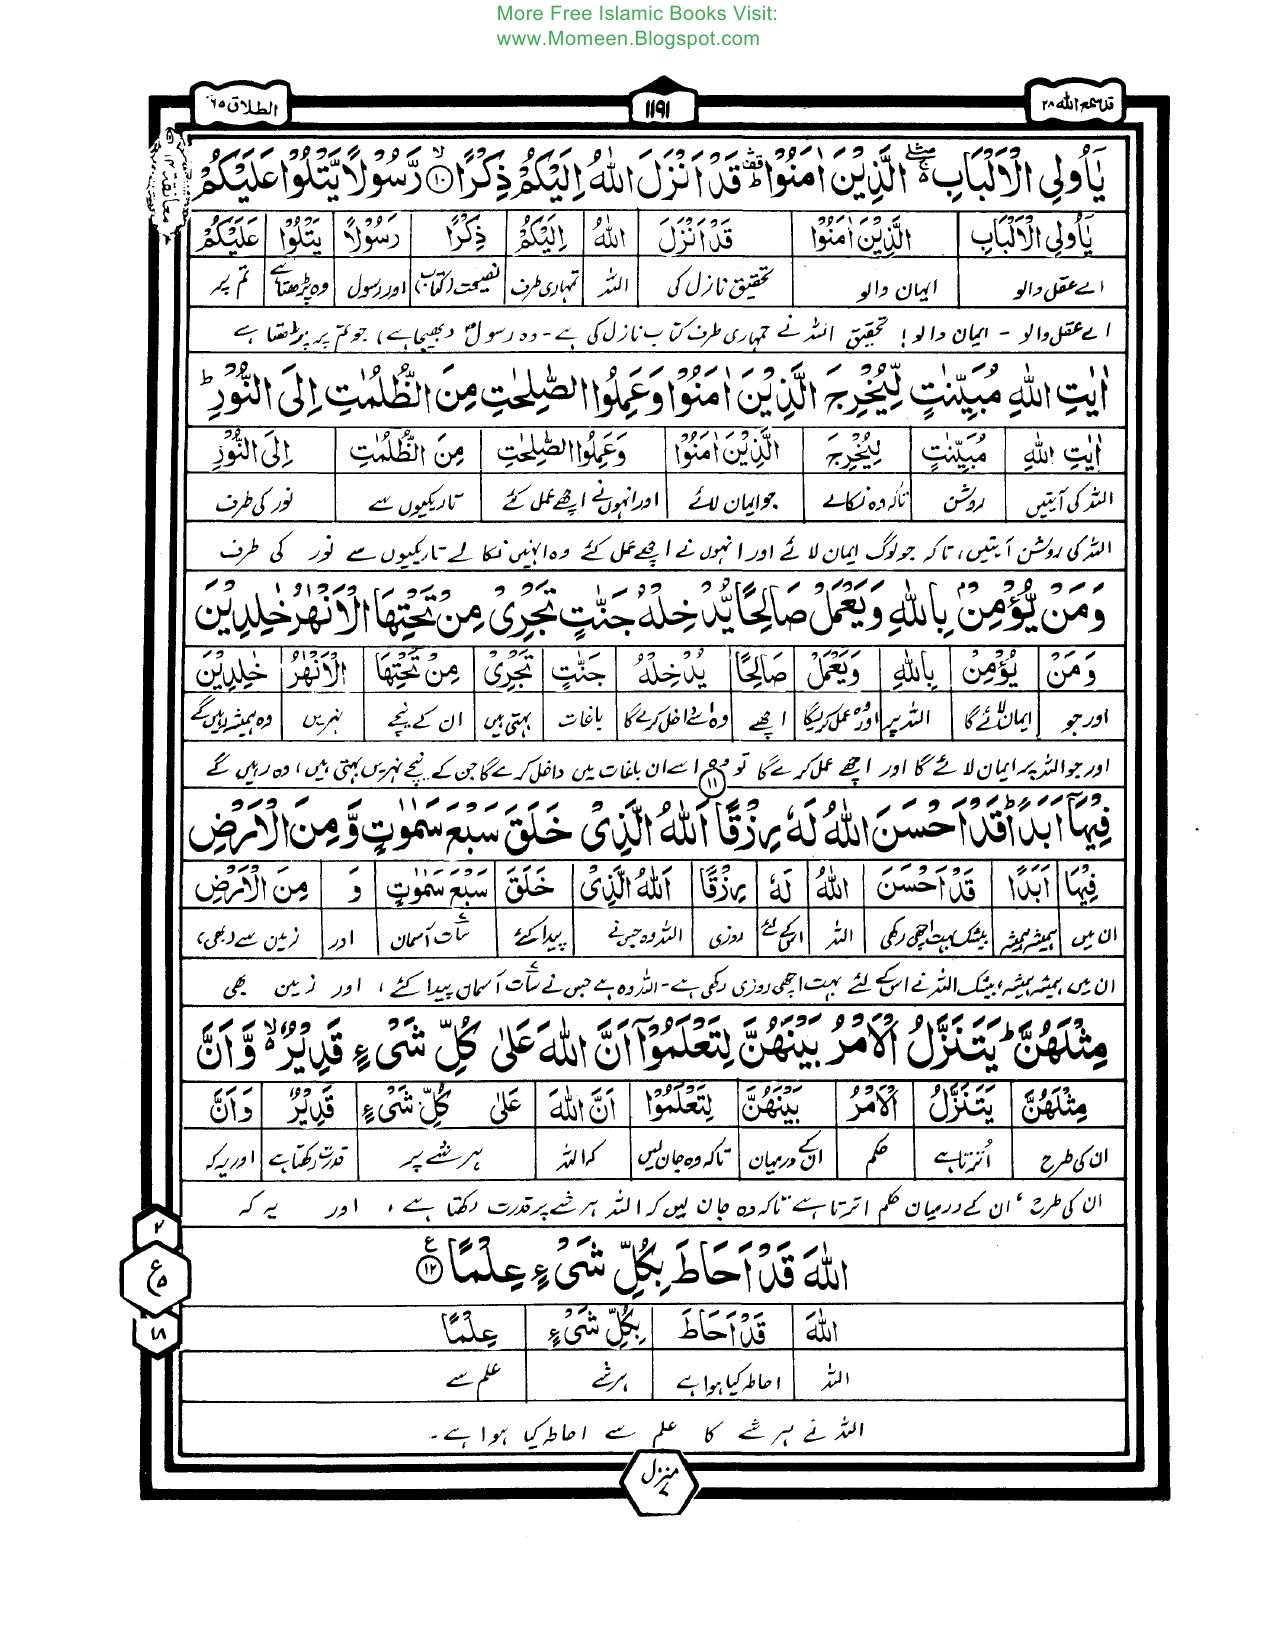 More Free Islamic Books Visit:
www.Momeen.Blogspot.com
قد سمع الله ٢٨
١١٩١
الطلاق ٦٥
يٰۤاُولِی الْاَلْبَابِ ۛۚ الَّذِیْنَ اٰمَنُوْا ۛؕ قَدْ اَنْزَلَ اللّٰهُ اِلَیْكُمْ ذِكْرًا ۙ۝۱۰ رَّسُوْلًا یَّتْلُوْا عَلَیْكُمْ
معانقة ١٢
یٰۤاُولِی الْاَلْبَابِ الَّذِیْنَ اٰمَنُوْا قَدْ اَنْزَلَ اللّٰهُ اِلَیْكُمْ ذِكْرًا رَسُوْلًا یَتْلُوْا عَلَیْكُمْ
اے عقل والو ایمان والو تحقیق نازل کی اللہ تمہاری طرف نصیحت (کتاب) اور رسول وہ پڑھتا ہے تم پر
اے عقل والو - ایمان والو! تحقیق اللہ نے تمہاری طرف کتاب نازل کی ہے - وہ رسول (بھیجا ہے) جو تم پر پڑھتا ہے
اٰیٰتِ اللّٰهِ مُبَیِّنٰتٍ لِّیُخْرِجَ الَّذِیْنَ اٰمَنُوْا وَعَمِلُوا الصّٰلِحٰتِ مِنَ الظُّلُمٰتِ اِلَی النُّوْرِ ؕ
اٰیٰتِ اللّٰهِ مُبَیِّنٰتٍ لِیُخْرِجَ الَّذِیْنَ اٰمَنُوْا وَعَمِلُوا الصّٰلِحٰتِ مِنَ الظُّلُمٰتِ اِلَی النُّوْرِ
اللہ کی آیتیں روشن تاکہ وہ نکالے جو ایمان لائے اور انہوں نے اچھے عمل کئے تاریکیوں سے نور کی طرف
اللہ کی روشن آیتیں، تاکہ جو لوگ ایمان لائے اور انہوں نے اچھے عمل کئے وہ انہیں نکالے تاریکیوں سے نور کی طرف
وَمَنْ یُّؤْمِنْۢ بِاللّٰهِ وَیَعْمَلْ صَالِحًا یُّدْخِلْهُ جَنّٰتٍ تَجْرِیْ مِنْ تَحْتِهَا الْاَنْهٰرُ خٰلِدِیْنَ
وَمَنْ یُؤْمِنْ بِاللّٰهِ وَیَعْمَلْ صَالِحًا یُدْخِلْهُ جَنّٰتٍ تَجْرِیْ مِنْ تَحْتِهَا الْاَنْهٰرُ خٰلِدِیْنَ
اور جو ایمان لائے گا اللہ پر اور وہ عمل کریگا اچھے وہ اسے داخل کرے گا باغات بہتی ہیں ان کے نیچے نہریں وہ ہمیشہ رہیں گے
اور جو اللہ پر ایمان لائے گا اور اچھے عمل کرے گا تو وہ اسے ان باغات میں داخل کرے گا جن کے نیچے نہریں بہتی ہیں، وہ رہیں گے
فِیْهَاۤ اَبَدًا ؕ قَدْ اَحْسَنَ اللّٰهُ لَهٗ رِزْقًا ۝۱۱ اَللّٰهُ الَّذِیْ خَلَقَ سَبْعَ سَمٰوٰتٍ وَّ مِنَ الْاَرْضِ
فِیْهَا اَبَدًا قَدْ اَحْسَنَ اللّٰهُ لَهٗ رِزْقًا اَللّٰهُ الَّذِیْ خَلَقَ سَبْعَ سَمٰوٰتٍ وَ مِنَ الْاَرْضِ
ان میں ہمیشہ ہمیشہ بیشک بہت اچھی رکھی اللہ اسکے لئے روزی اللہ وہ جس نے پیدا کئے سات آسمان اور زمین سے (بھی)
ان میں ہمیشہ ہمیشہ، بیشک اللہ نے اس کے لئے بہت اچھی روزی رکھی ہے - اللہ وہ ہے جس نے سات آسمان پیدا کئے، اور زمین بھی
مِثْلَهُنَّ ؕ یَتَنَزَّلُ الْاَمْرُ بَیْنَهُنَّ لِتَعْلَمُوْۤا اَنَّ اللّٰهَ عَلٰی كُلِّ شَیْءٍ قَدِیْرٌ ۙ۬ وَّ اَنَّ
مِثْلَهُنَّ یَتَنَزَّلُ الْاَمْرُ بَیْنَهُنَّ لِتَعْلَمُوْا اَنَّ اللّٰهَ عَلٰی كُلِّ شَیْءٍ قَدِیْرٌ وَاَنَّ
ان کی طرح اُترتا ہے حکم ان کے درمیان تاکہ وہ جان لیں کہ اللہ ہر شے پر قدرت رکھتا ہے اور یہ کہ
ان کی طرح، ان کے درمیان حکم اترتا ہے تاکہ وہ جان لیں کہ اللہ ہر شے پر قدرت رکھتا ہے، اور یہ کہ
٢
ع ٥
١٨
اللّٰهَ قَدْ اَحَاطَ بِكُلِّ شَیْءٍ عِلْمًا ۠۝۱۲
اللّٰهَ قَدْ اَحَاطَ بِكُلِّ شَیْءٍ عِلْمًا
اللہ احاطہ کیا ہوا ہے ہر شے علم سے
اللہ نے ہر شے کا علم سے احاطہ کیا ہوا ہے -
منزل ٧